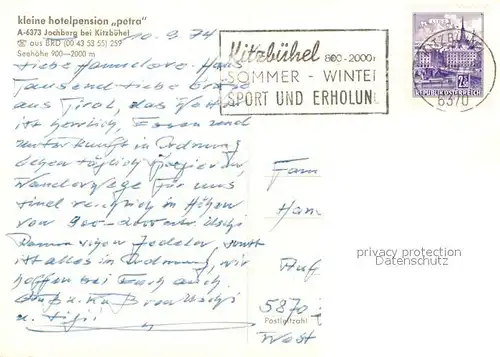 kleine hotelpension „petra"
A-6373 Jochberg bei Kitzbühel
☎ aus BRD (00 43 53 55) 259
Seehöhe 900—2000 m
10.9.74
Liebe Hannelore, Hans
Tausend liebe Grüße
aus Tirol, das Wetter
ist herrlich, Essen und
Unterkunft in Ordnung
gehen täglich spazieren,
Wanderwege für uns
sind reichlich in Höhen
von 900-2000 m. Uschi
kann schon Jodeln, sonst
ist alles in Ordnung, wir
hoffen bei Euch auch.
Gruß u. Kuß von Uschi
u.
Kitzbühel 800-2000m
SOMMER - WINTER
SPORT UND ERHOLUN
6370
REPUBLIK ÖSTERREICH
Fam
Han
5870
Postleitzahl
West
privacy protection
Datenschutz